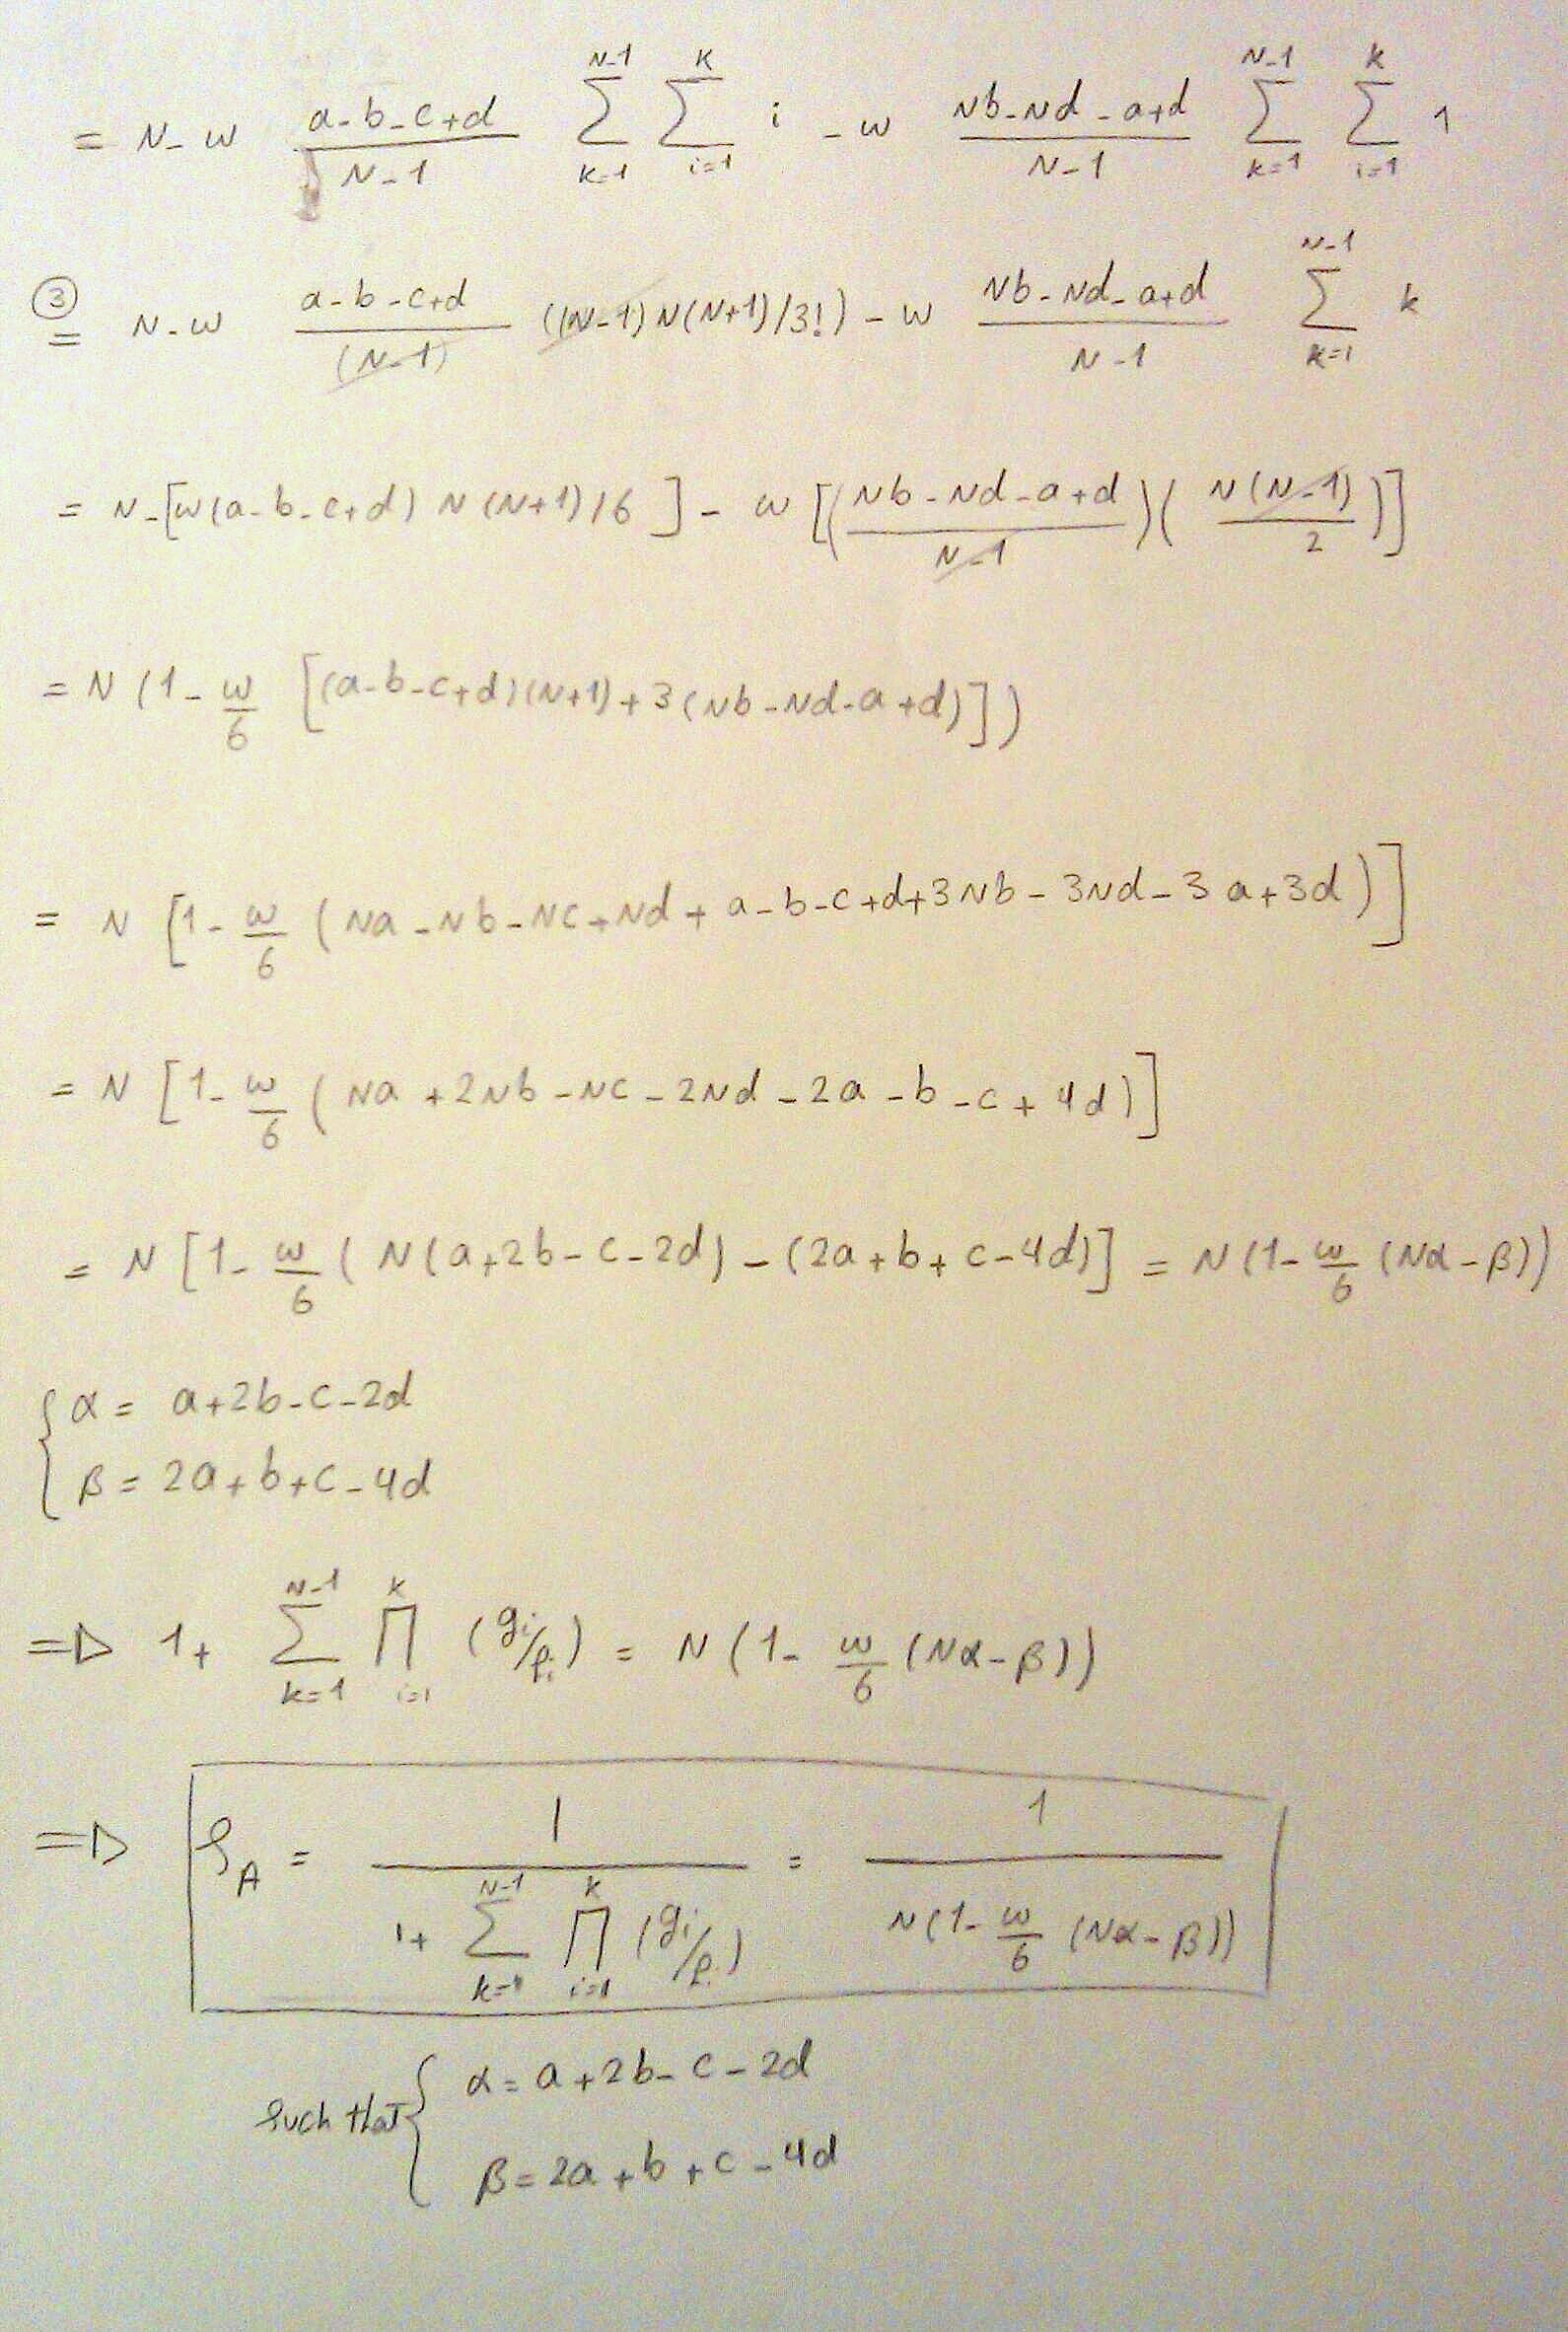 = N - w \frac{a-b-c+d}{N-1} \sum_{k=1}^{N-1} \sum_{i=1}^{k} i - w \frac{Nb-Nd-a+d}{N-1} \sum_{k=1}^{N-1} \sum_{i=1}^{k} 1
③ = N - w \frac{a-b-c+d}{(N-1)} ((N-1)N(N+1)/3!) - w \frac{Nb-Nd-a+d}{N-1} \sum_{k=1}^{N-1} k
= N - [w(a-b-c+d) N(N+1)/6] - w [(\frac{Nb-Nd-a+d}{N-1})(\frac{N(N-1)}{2})]
= N (1 - \frac{w}{6} [(a-b-c+d)(N+1) + 3(Nb-Nd-a+d)])
= N [1 - \frac{w}{6} (Na-Nb-Nc+Nd+a-b-c+d+3Nb-3Nd-3a+3d)]
= N [1 - \frac{w}{6} (Na+2Nb-Nc-2Nd-2a-b-c+4d)]
= N [1 - \frac{w}{6} (N(a+2b-c-2d) - (2a+b+c-4d)] = N(1 - \frac{w}{6} (Nα-β))
α = a+2b-c-2d
β = 2a+b+c-4d
⇒ 1 + \sum_{k=1}^{N-1} \prod_{i=1}^{k} (g_i/f_i) = N(1 - \frac{w}{6} (Nα-β))
⇒ ρ_A = \frac{1}{1 + \sum_{k=1}^{N-1} \prod_{i=1}^{k} (g_i/f_i)} = \frac{1}{N(1 - \frac{w}{6} (Nα-β))}
such that
α = a+2b-c-2d
β = 2a+b+c-4d